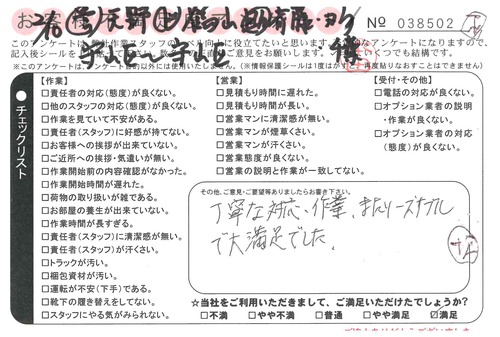 № 038502
このアンケートは
記入後シールを
※このアンケートは
以外には使用いたしません。(※情報保護シールは1度はが
再度貼りなおすことはできません)
チェックリスト
【作業】
□責任者の対応(態度)が良くない。
□他のスタッフの対応(態度)が良くない。
□作業を見ていて不安がある。
□責任者(スタッフ)に好感が持てない。
□お客様への挨拶が出来ていない。
□ご近所への挨拶・気遣いが無い。
□作業開始前の内容確認がなかった。
□作業開始時間が遅れた。
□荷物の取り扱いが雑である。
□お部屋の養生が出来ていない。
□作業時間が長すぎる。
□責任者(スタッフ)に清潔感が無い。
□責任者(スタッフ)が汗くさい。
□トラックが汚い。
□梱包資材が汚い。
□運転が不安(下手)である。
□靴下の履き替えをしてない。
□スタッフにやる気がみられない。
【営業】
□見積もり時間に遅れた。
□見積もり時間が長い。
□営業マンに清潔感が無い。
□営業マンが煙草くさい。
□営業マンが汗くさい。
□営業態度が良くない。
□営業の説明と作業が一致してない。
【受付・その他】
□電話の対応が良くない。
□オプション業者の説明
・作業が良くない。
□オプション業者の対応
(態度)が良くない。
その他、ご意見・ご要望等ありましたらお書き下さい。
丁寧な対応、作業、またリーズナブル
で大満足でした。
☆当社をご利用いただきまして、ご満足いただけたでしょうか?
□不満 □やや不満 □普通 □やや満足 ☑満足